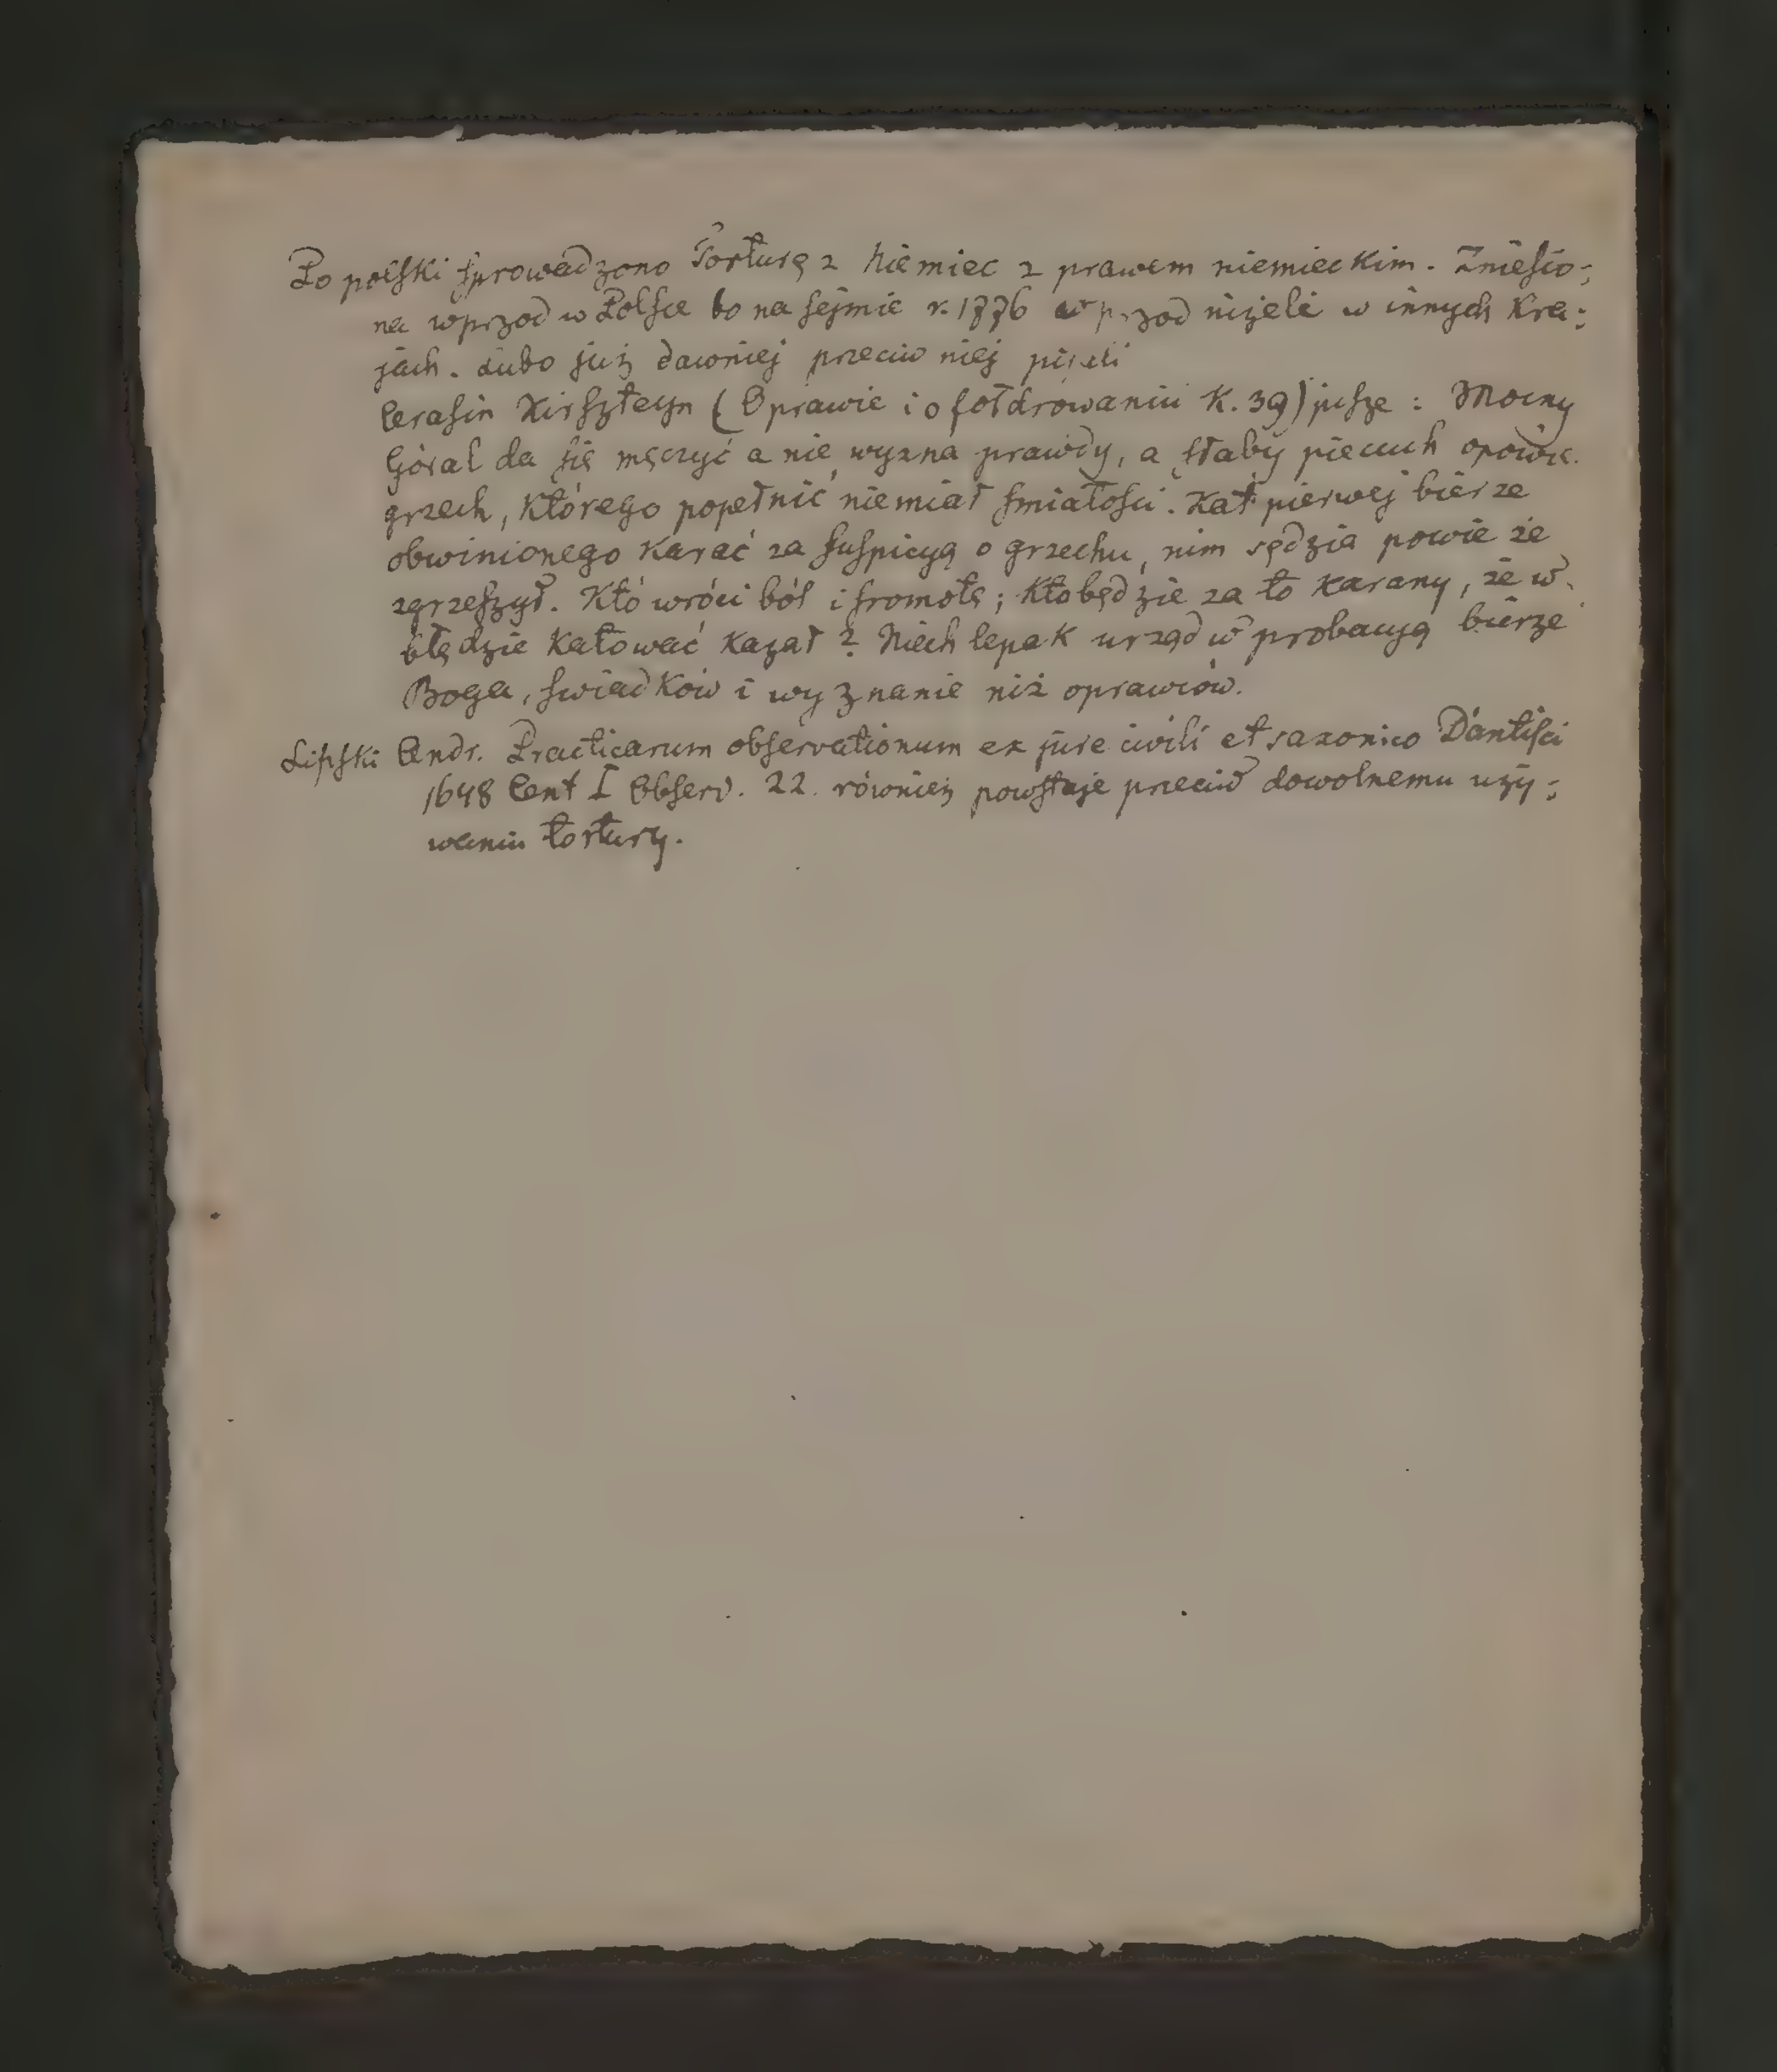 Do polski sprowadzono Torturę z Niemiec z prawem niemieckim. Zniesio:
na wprzod w Polsce bo na sejmie r. 1776 wprzod niżeli w innych kra:
jach. Lubo już dawniej przeciw niej pisali
Cerasin Kirszteyn (O prawie i o foldrowaniu K. 39) pisze: Mocny
Góral da się męczyć a nie wyzna prawdy, a słaby piecuch opowie
grzech, którego popełnić niemiał smiałości. Kat pierwej bierze
obwinionego karać za suspicyą o grzechu, nim sędzia powie że
zgrzeszył. Kto wróci ból i sromotę; kto będzie za to karany, że w
błędzie katować kazał? Niech lepak urząd w probacyą bierze
Boga, swiadków i wyznanie niż oprawców.
Lipski Andr. Practicarum observationum ex jure civili et saxonico Dantisci
1648 Cent I Observ. 22. również powstaje przeciw dowolnemu uży:
waniu tortury.